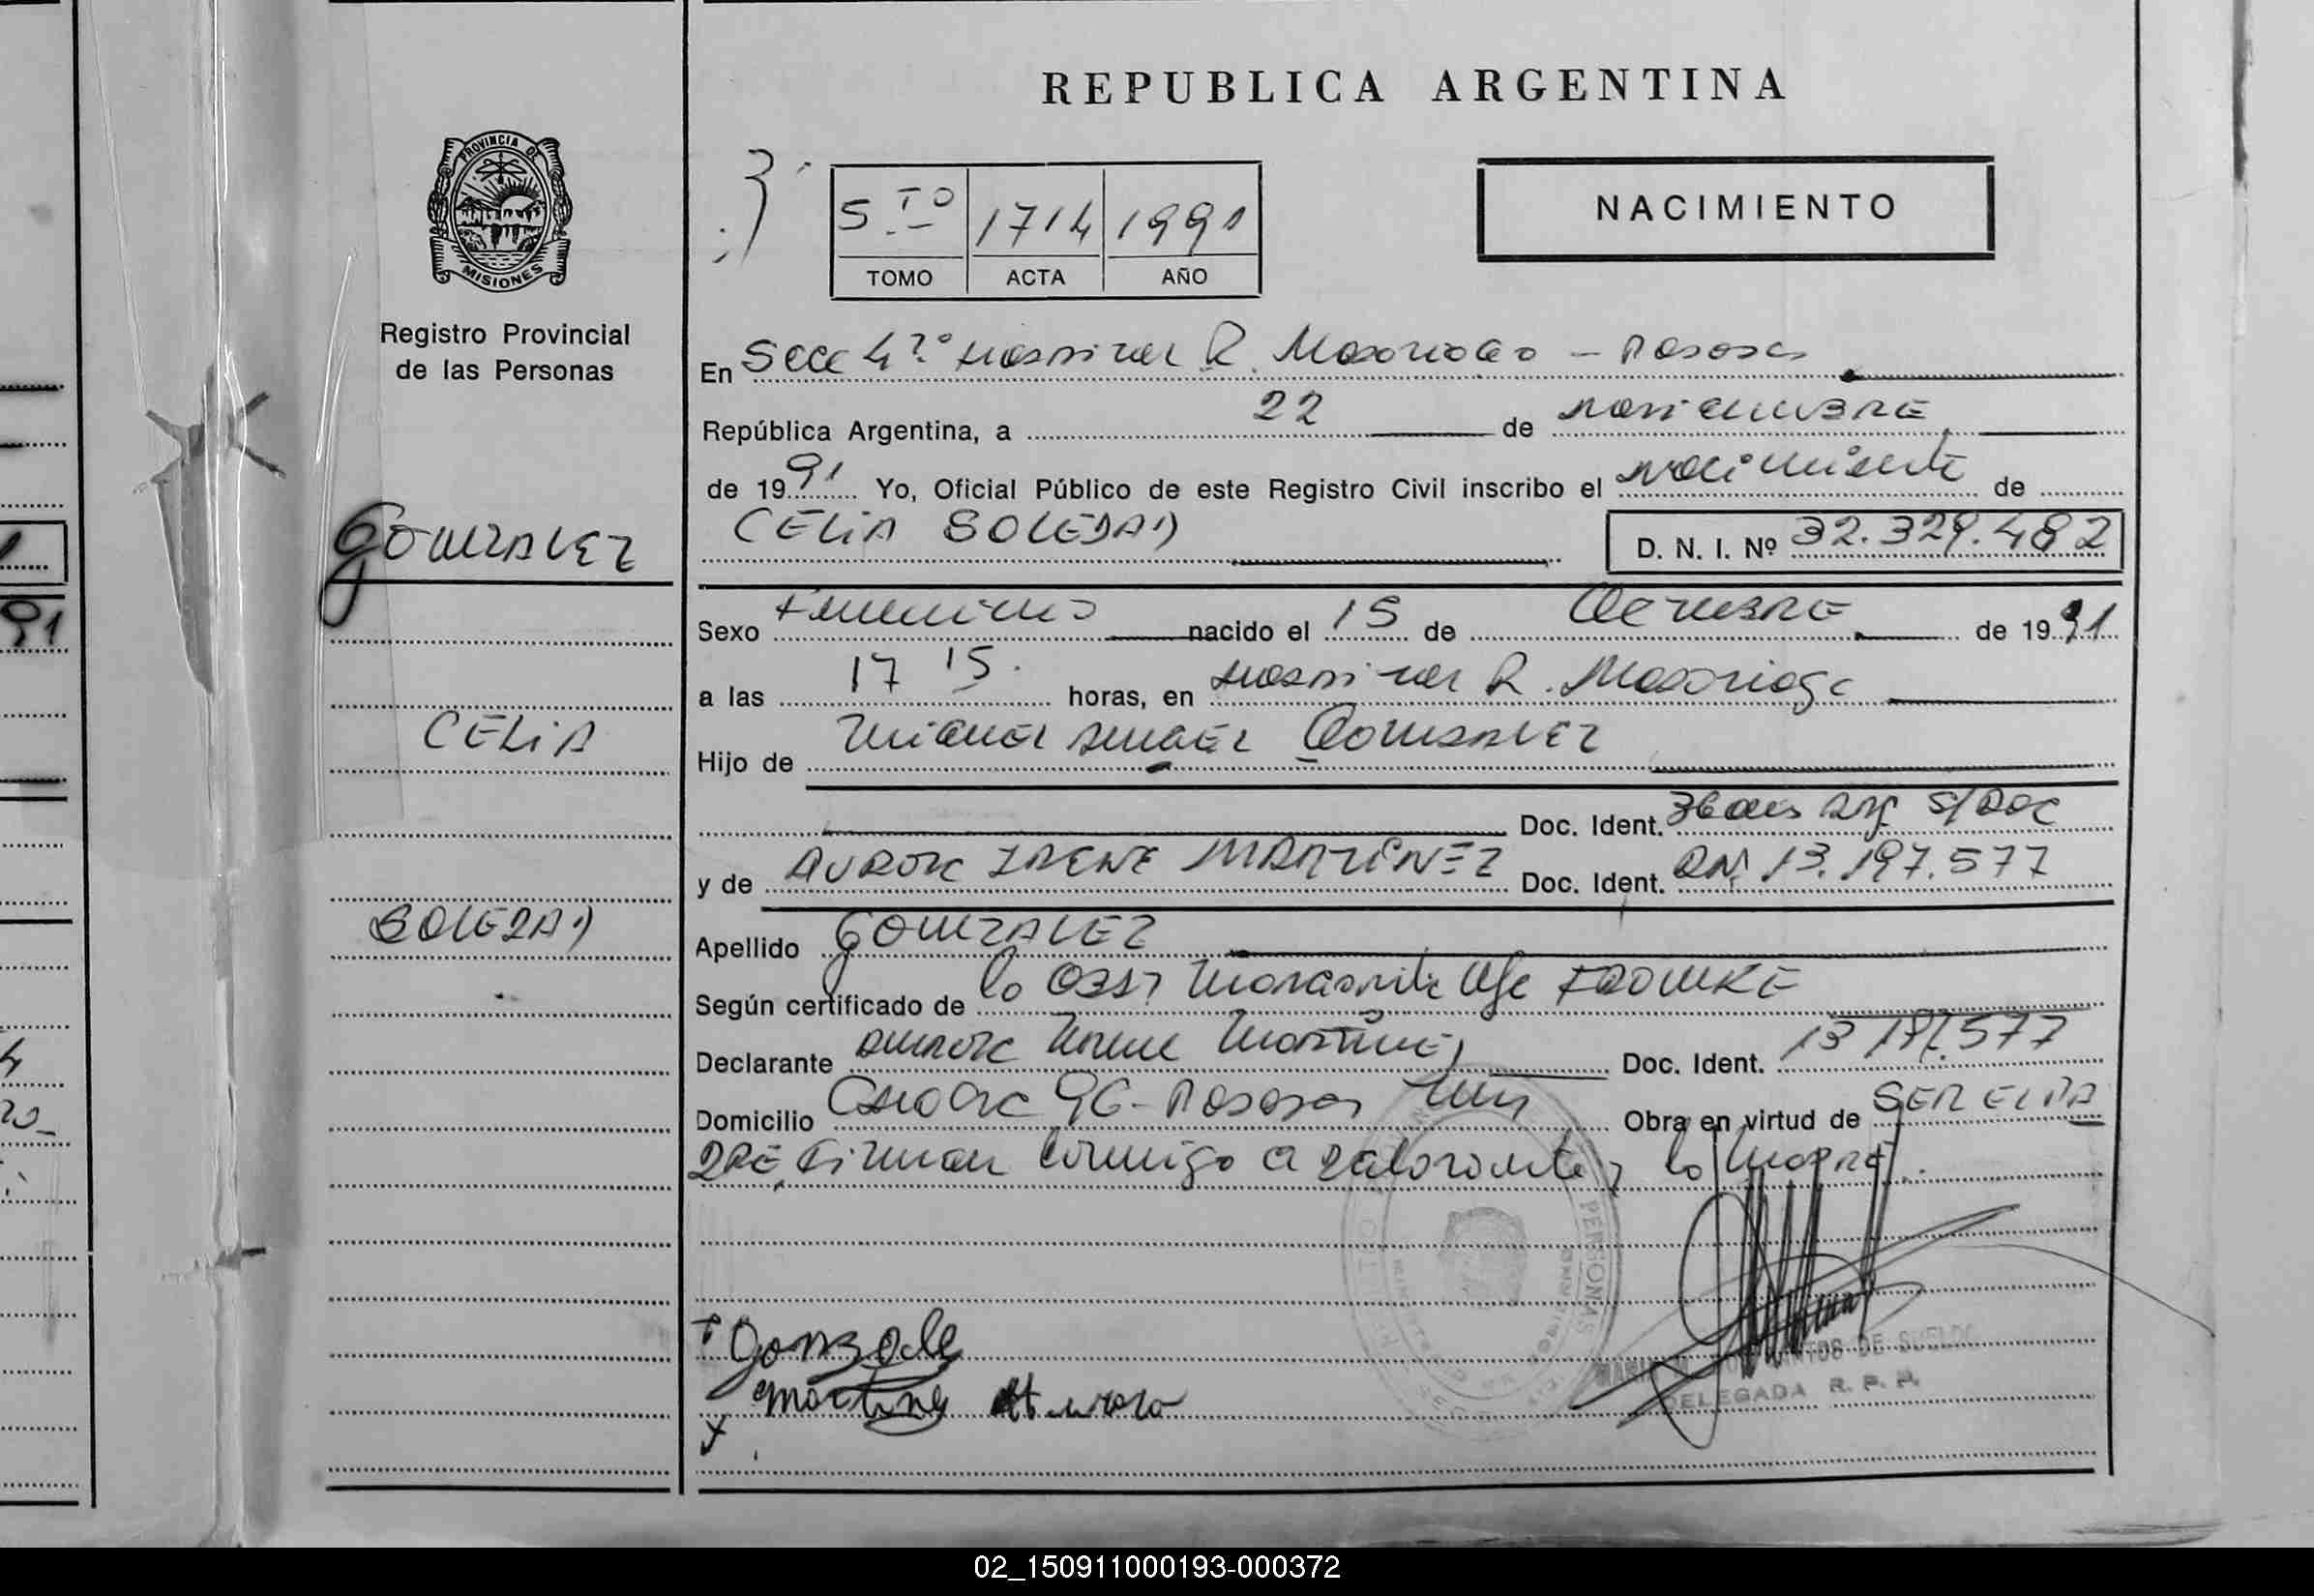 REPUBLICA ARGENTINA
PROVINCIA DE
MISIONES
Registro Provincial
de las Personas
5TO 1714 1991
TOMO ACTA AÑO
NACIMIENTO
En Secc 4ta Hospital R. Madariaga - Posadas
República Argentina, a 22 de noviembre
de 1991 Yo, Oficial Público de este Registro Civil inscribo el nacimiento de
CELIA SOLEDAD
D. N. I. Nº 32.329.482
GONZALEZ
CELIA
SOLEDAD
Sexo Femenino nacido el 15 de Octubre de 1991
a las 17 15 horas, en Hospital R. Madariaga
Hijo de Miguel Angel Gonzalez
Doc. Ident. 36 años Arg S/Doc
y de AURORA IRENE MARTINEZ Doc. Ident. DNI 13.197.577
Apellido GONZALEZ
Según certificado de la Obst Margarita FROMKE
Declarante Aurora Irene Martinez Doc. Ident. 13 197.577
Domicilio 96 - Posadas Obra en virtud de SER EL PA
DRE, firman conmigo el declarante y la madre.
PERSONAS
Gonzalez
Martinez Aurora
DE SUELDO
DELEGADA R. P. P.
91
02_150911000193-000372